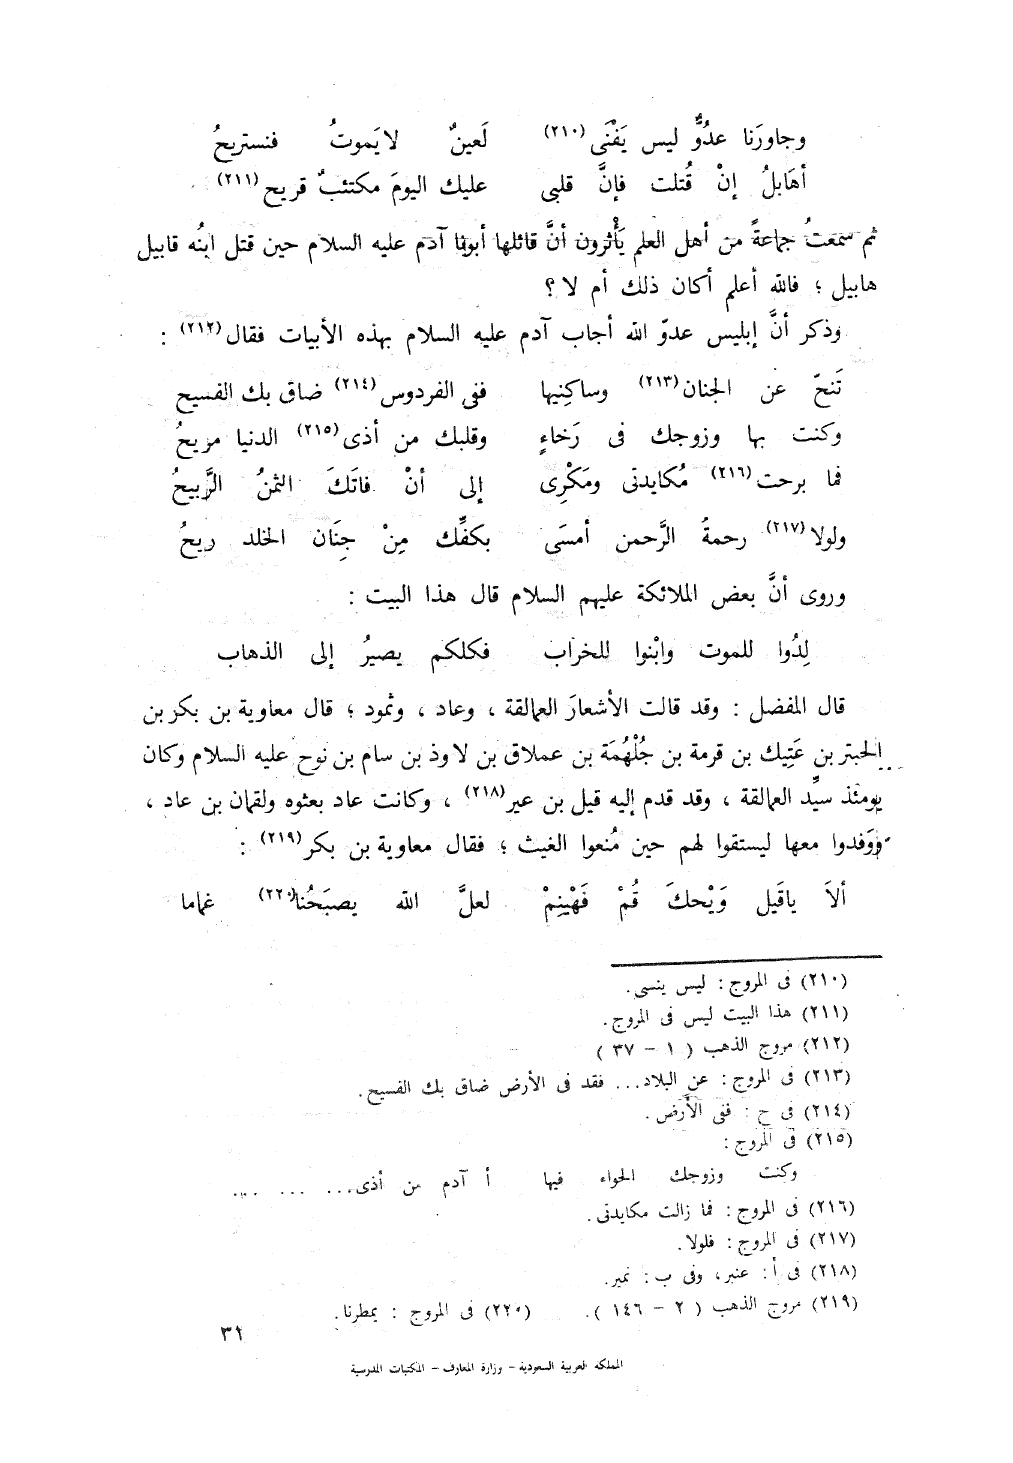 وجاورَنا عدُوٌّ ليس يَفْنَى (٢١٠) لَعينٌ لا يَموتُ فنستريحُ
أهَابلُ إنْ قُتلت فإنَّ قلبى عليك اليومَ مكتئبٌ قريح (٢١١)
ثم سمعتُ جماعةً من أهل العلم يَأْثرون أنَّ قائلها أبونا آدم عليه السلام حين قتل ابنُه قابيل
هابيل ؛ فالله أعلم أكان ذلك أم لا ؟
وذكر أنَّ إبليس عدوّ الله أجاب آدم عليه السلام بهذه الأبيات فقال (٢١٢) :
تَنحّ عن الجنان (٢١٣) وساكِنيها ففى الفردوس (٢١٤) ضاق بك الفسيح
وكنت بها وزوجك فى رَخاءٍ وقلبك من أذى (٢١٥) الدنيا مريحُ
فما برحت (٢١٦) مُكايدتى ومَكْرِى إلى أنْ فاتَكَ الثمنُ الرَّبيحُ
ولولا (٢١٧) رحمةُ الرَّحمن أمسَى بكفِّك مِنْ جِنَان الخلد ريحُ
وروى أنَّ بعض الملائكة عليهم السلام قال هذا البيت :
لِدُوا للموت وابْنوا للخراب فكلكم يصيرُ إلى الذهاب
قال المفضل : وقد قالت الأشعارَ العمالقة ، وعاد ، وثمود ؛ قال معاوية بن بكر بن
الحبتر بن عَتِيك بن قرمة بن جُلْهُمَة بن عملاق بن لاوذ بن سام بن نوح عليه السلام وكان
يومئذ سيِّد العمالقة ، وقد قدم إليه قيل بن عير (٢١٨) ، وكانت عاد بعثوه ولقمان بن عاد ،
ووَفدوا معها ليستقوا لهم حين مُنعوا الغيث ؛ فقال معاوية بن بكر (٢١٩) :
ألاَ ياقَيل وَيْحكَ قُمْ فَهْينِمْ لعلَّ الله يصبَحُنا (٢٢٠) غماما
(٢١٠) فى المروج : ليس ينسى .
(٢١١) هذا البيت ليس فى المروج .
(٢١٢) مروج الذهب ( ١ – ٣٧ )
(٢١٣) فى المروج : عن البلاد ... فقد فى الأرض ضاق بك الفسيح .
(٢١٤) فى ح : ففى الأرض .
(٢١٥) فى المروج :
وكنت وزوجك الحواء فيها أ آدم من أذى ... ... ...
(٢١٦) فى المروج : فما زالت مكايدتى .
(٢١٧) فى المروج : فلولا .
(٢١٨) فى أ : عنبر ، وفى ب : نمير .
(٢١٩) مروج الذهب ( ٢ – ١٤٦ ) . (٢٢٠) فى المروج : يمطرنا .
٣١
المملكة العربية السعودية – وزارة المعارف – المكتبات المدرسية